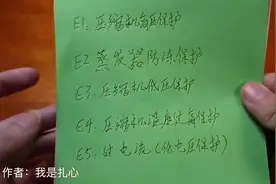 E1. 压缩机高压保护
E2 蒸发器防冻保护
E3. 压缩机低压保护
E4. 压缩机温度过高保护
E5. 过电流(低电压保护)
作者：我是扎心